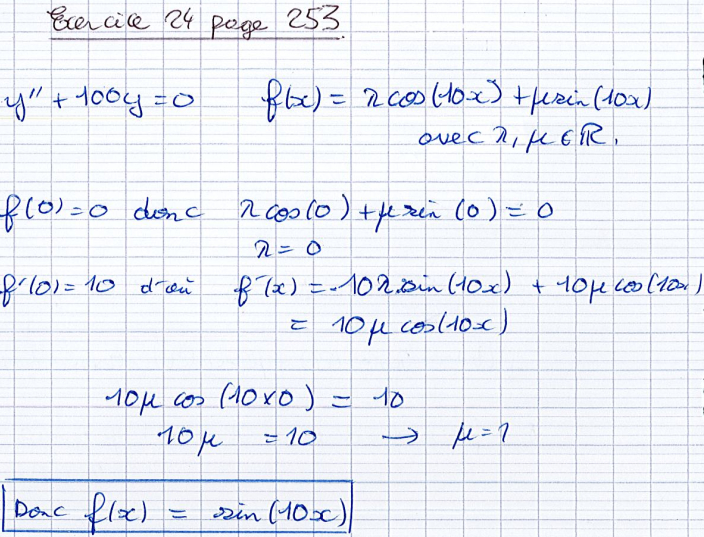 Exercice 24 page 253.
y'' + 100y = 0 f(x) = λ cos(10x) + μ sin(10x)
avec λ, μ ∈ ℝ.
f(0) = 0 donc λ cos(0) + μ sin(0) = 0
λ = 0
f'(0) = 10 d'où f'(x) = -10λ sin(10x) + 10μ cos(10x)
= 10μ cos(10x)
10μ cos(10×0) = 10
10μ = 10 → μ = 1
Donc f(x) = sin(10x)